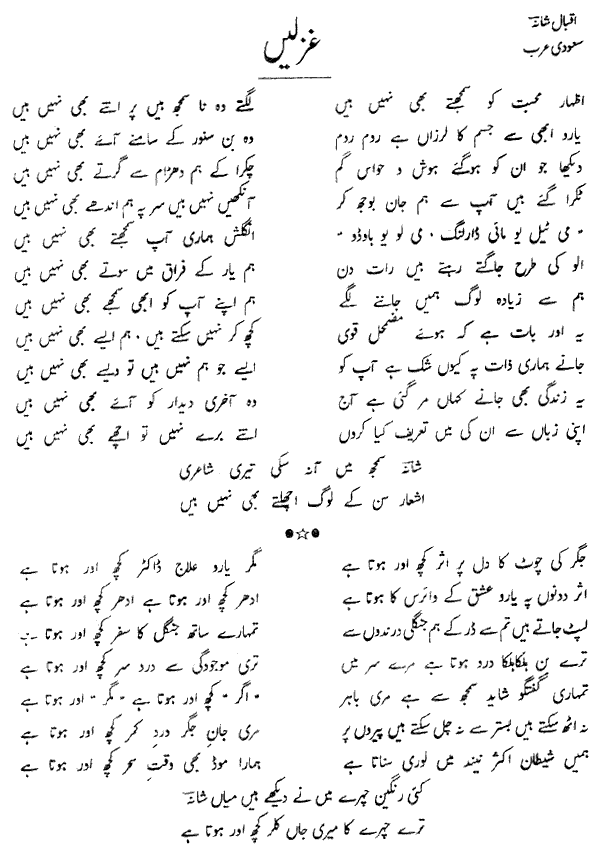 اقبال شانہؔ
سعودی عرب
غزلیں
اظہار محبت کو سمجھتے بھی نہیں ہیں لگتے وہ نا سمجھ ہیں پر اتنے بھی نہیں ہیں
یارو ابھی سے جسم کا لرزاں ہے روم روم وہ بن سنور کے سامنے آئے بھی نہیں ہیں
دیکھا جو ان کو ہوگئے ہوش و حواس گم چکرا کے ہم دھڑام سے گرتے بھی نہیں ہیں
ٹکرا گئے ہیں آپ سے ہم جان بوجھ کر آنکھیں نہیں ہیں سر پہ ہم اندھے بھی نہیں ہیں
"می ٹیل یو مائی ڈارلنگ، می لو یو ہاؤڈو" انگلش ہماری آپ سمجھتے بھی نہیں ہیں
الو کی طرح جاگتے رہتے ہیں رات دن ہم یار کے فراق میں سوتے بھی نہیں ہیں
ہم سے زیادہ لوگ ہمیں جاننے لگے ہم اپنے آپ کو ابھی سمجھے بھی نہیں ہیں
یہ اور بات ہے کہ ہوئے مضمحل قوی کچھ کر نہیں سکتے ہیں، ہم ایسے بھی نہیں ہیں
جانے ہماری ذات پہ کیوں شک ہے آپ کو ایسے جو ہم نہیں ہیں تو ویسے بھی نہیں ہیں
یہ زندگی بھی جانے کہاں مر گئی ہے آج وہ آخری دیدار کو آئے بھی نہیں ہیں
اپنی زباں سے ان کی میں تعریف کیا کروں اتنے برے نہیں تو اچھے بھی نہیں ہیں
شانہؔ سمجھ میں آنہ سکی تیری شاعری
اشعار سن کے لوگ اچھلتے بھی نہیں ہیں
جگر کی چوٹ کا دل پر اثر کچھ اور ہوتا ہے مگر یارو علاج ڈاکٹر کچھ اور ہوتا ہے
اثر دونوں پہ یارو عشق کے وائرس کا ہوتا ہے ادھر کچھ اور ہوتا ہے ادھر کچھ اور ہوتا ہے
لپٹ جاتے ہیں تم سے ڈر کے ہم جنگلی درندوں سے تمہارے ساتھ جنگل کا سفر کچھ اور ہوتا ہے
ترے بن ہلکا ہلکا درد ہوتا ہے مرے سر میں تری موجودگی سے درد سر کچھ اور ہوتا ہے
تمہاری گفتگو شاید سمجھ سے ہے مری باہر "اگر" کچھ اور ہوتا ہے "مگر" کچھ اور ہوتا ہے
نہ اٹھ سکتے ہیں بستر سے نہ چل سکتے ہیں پیروں پر مری جانِ جگر دردِ کمر کچھ اور ہوتا ہے
ہمیں شیطان اکثر نیند میں لوری سناتا ہے ہمارا موڈ بھی وقتِ سحر کچھ اور ہوتا ہے
کئی رنگین چہرے میں نے دیکھے ہیں میاں شانہؔ
ترے چہرے کا میری جاں کلر کچھ اور ہوتا ہے